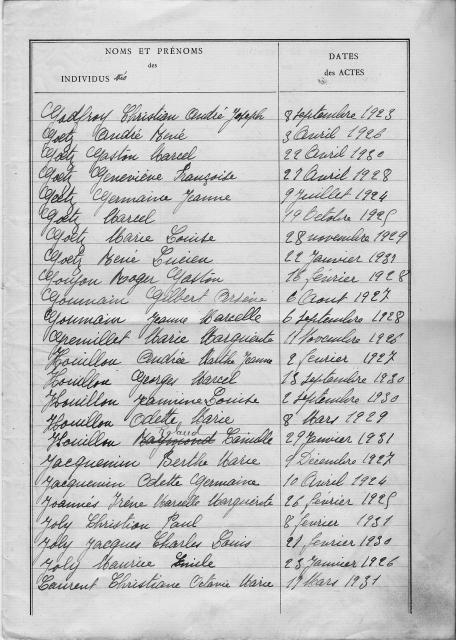 NOMS ET PRÉNOMS
des
INDIVIDUS nés
DATES
des ACTES
Godfroy Christian André Joseph 8 septembre 1923
Goetz André René 3 Avril 1926
Goetz Gaston Marcel 22 Avril 1930
Goetz Geneviève Françoise 27 Avril 1928
Goetz Germaine Jeanne 9 Juillet 1924
Goetz Marcel 19 Octobre 1925
Goetz Marie Louise 28 novembre 1929
Goetz René Lucien 22 Janvier 1931
Goujon Roger Gaston 18 février 1928
Goumain Gilbert Arsène 6 Aout 1927
Goumain Jeanne Marcelle 6 septembre 1928
Gremillet Marie Marguerite 11 Novembre 1926
Houillon Andrée Marthe Jeanne 2 février 1927
Houillon Georges Marcel 13 septembre 1930
Houillon Jeannine Louise 2 septembre 1930
Houillon Odette Marie 8 Mars 1929
Houillon Raymond Camille 29 Janvier 1931
Jacquemin Berthe Marie 9 Décembre 1927
Jacquemin Odette Germaine 10 Avril 1924
Joannès Irène Marcelle Marguerite 26 février 1925
Joly Christian Paul 8 février 1931
Joly Jacques Charles Louis 21 février 1930
Joly Maurice Emile 23 Janvier 1926
Laurent Christiane Octavie Marie 17 Mars 1931